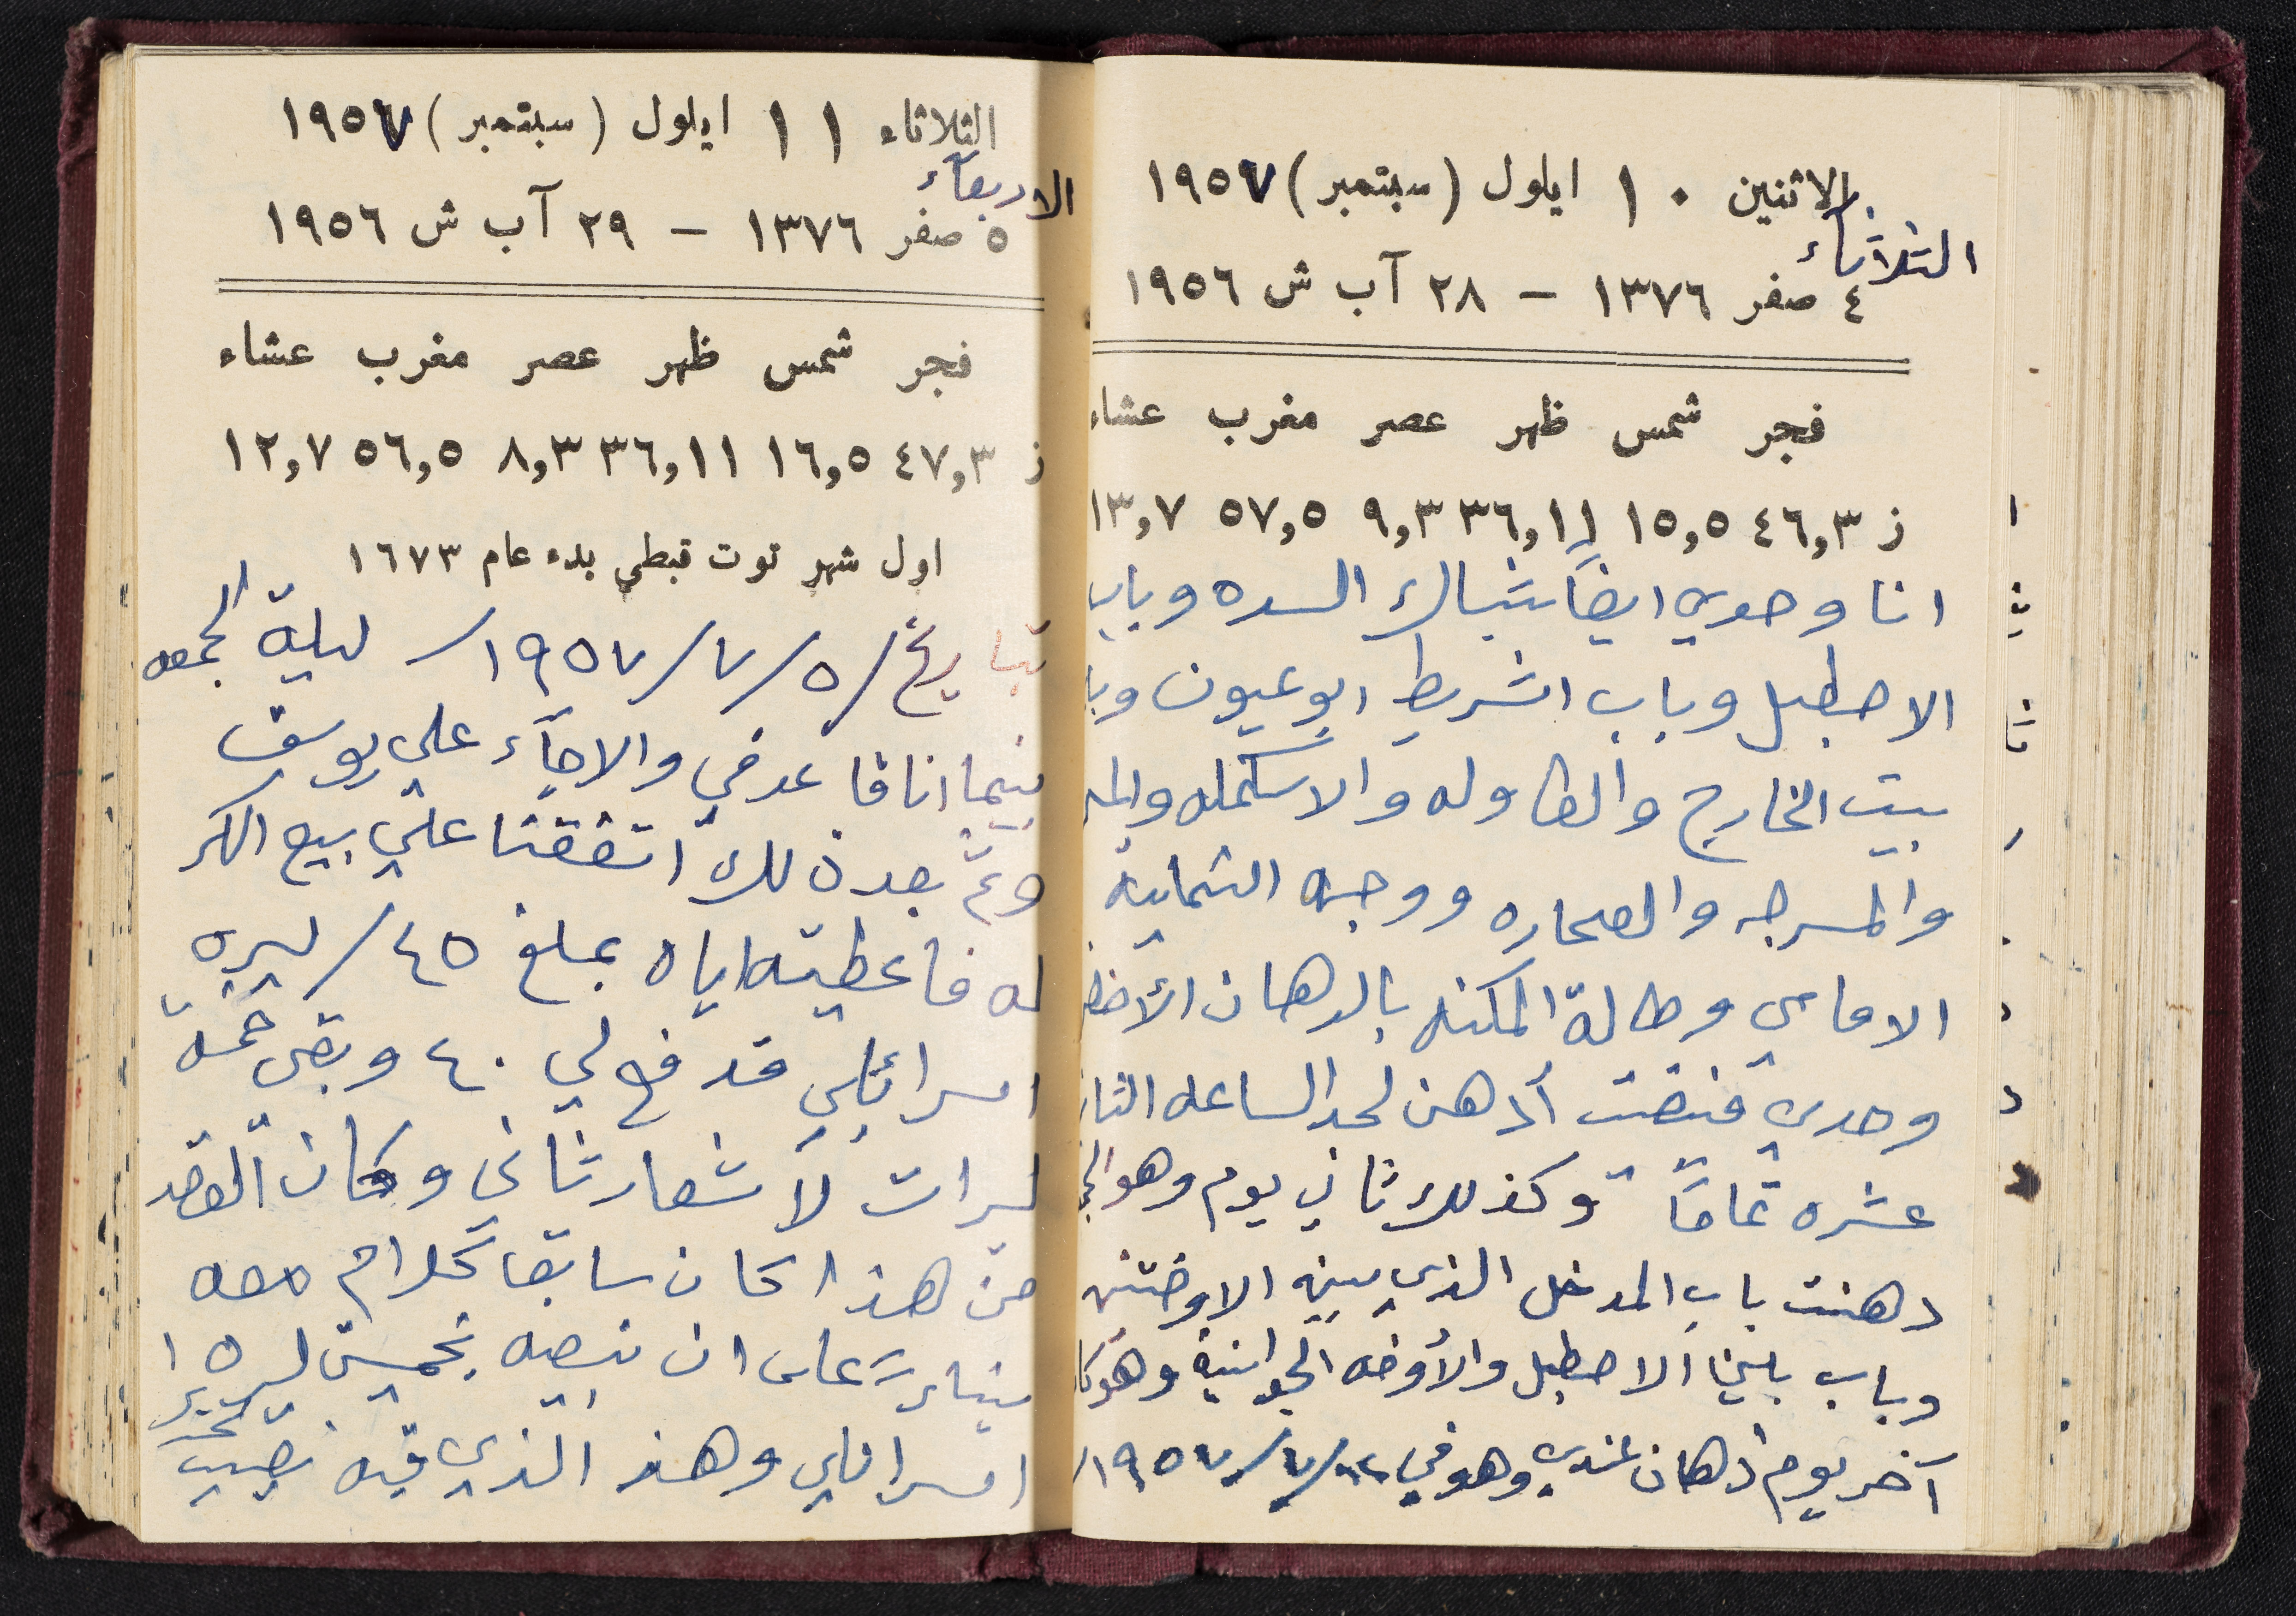 الاثنين ١٠ ايلول (سبتمبر) ١٩٥٧
الثلاثاء
٤ صفر ١٣٧٦ – ٢٨ آب ش ١٩٥٦
فجر شمس ظهر عصر مغرب عشاء
ز ٤٦,٣ ١٥,٥ ٣٦,١١ ٩,٣ ٥٧,٥ ١٣,٧
انا وحدي ايضاً شباك السده وباب
الاصطبل وباب الشريط ابو عيون وبا
بيت الخارج والطاوله والاسكمله
والمسرجه والصحاره ووجه
الامامي وطالة المكنه بالدهان
وحدي أدهن لحد الساعه
عشره تماماً وكذلك ثاني يوم وهو
دهنت باب المدخل الذي بين الاوضتين
وباب بين الاصطبل والأوضه الجوانيه
آخر يوم دهان عندي وهو في ١٩٥٧/٧/
الثلاثاء ١١ ايلول (سبتمبر) ١٩٥٧
الاربعآء
٥ صفر ١٣٧٦ – ٢٩ آب ش ١٩٥٦
فجر شمس ظهر عصر مغرب عشاء
ز ٤٧,٣ ١٦,٥ ٣٦,١١ ٨,٣ ٥٦,٥ ١٢,٧
اول شهر توت قبطي بدء عام ١٦٧٣
بتاريخ /٥/٧/١٩٥٧/ ليلة الجمعه
بينما انا قاعد في والا جآء علي يوسف
بعد ذلك اتفقنا على بيع الكر
له فاعطيته اياه بمبلغ ٤٥/ ليره
اسرائيلي فدفع لي ٤٠ وبقي خمسة
ليرات لاشعار ثاني وكان القصد
من هذا كان سابقا كلام معه
على ان نبيعه بخمسين ليره
اسرائيلي وهذ الذي فيه نصيب